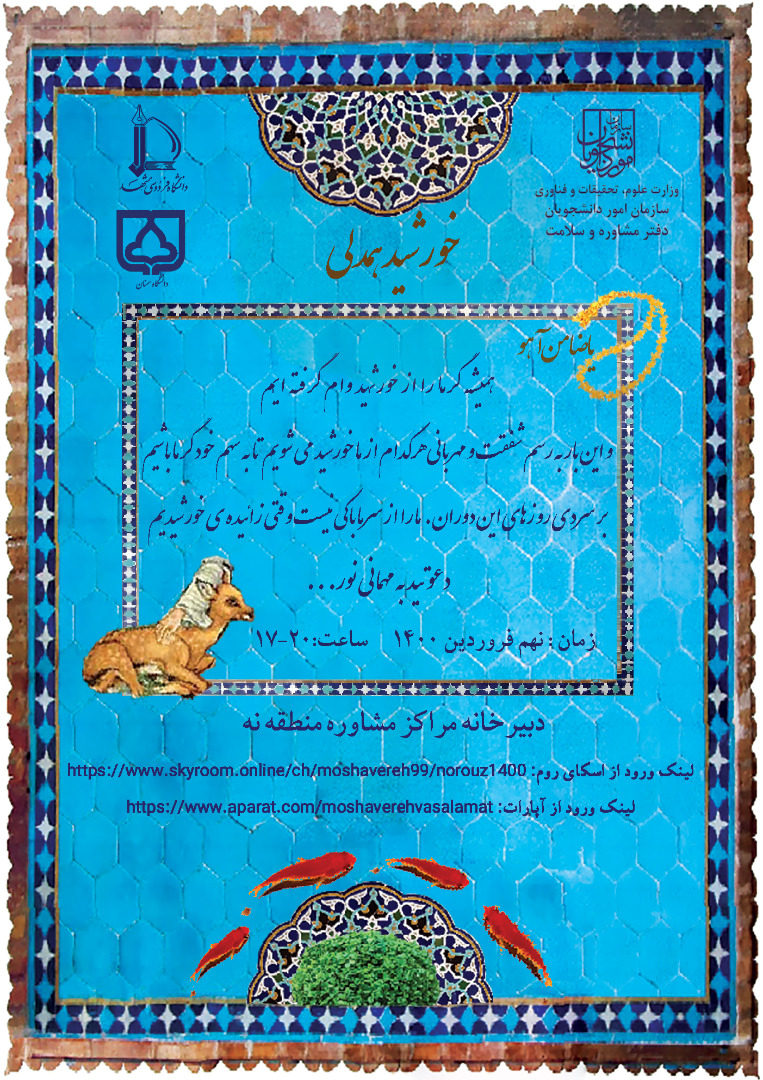 سازمان امور دانشجویان
وزارت علوم، تحقیقات و فناوری
سازمان امور دانشجویان
دفتر مشاوره و سلامت
دانشگاه فردوسی مشهد
دانشگاه سمنان
خورشید همدلی
یا ضامن آهو
همیشه گرما را از خورشید وام گرفته ایم
و این بار به رسم شفقت و مهربانی هرکدام از ما خورشید می شویم تا به سهم خود گرما باشیم
بر سردی روزهای این دوران. ما را از سرما باکی نیست وقتی زائیده ی خورشیدیم
دعوتید به مهمانی نور...
زمان : نهم فروردین ۱۴۰۰ ساعت: ۲۰-۱۷
دبیرخانه مراکز مشاوره منطقه نه
لینک ورود از اسکای روم: https://www.skyroom.online/ch/moshavereh99/norouz1400
لینک ورود از آپارات: https://www.aparat.com/moshaverehvasalamat